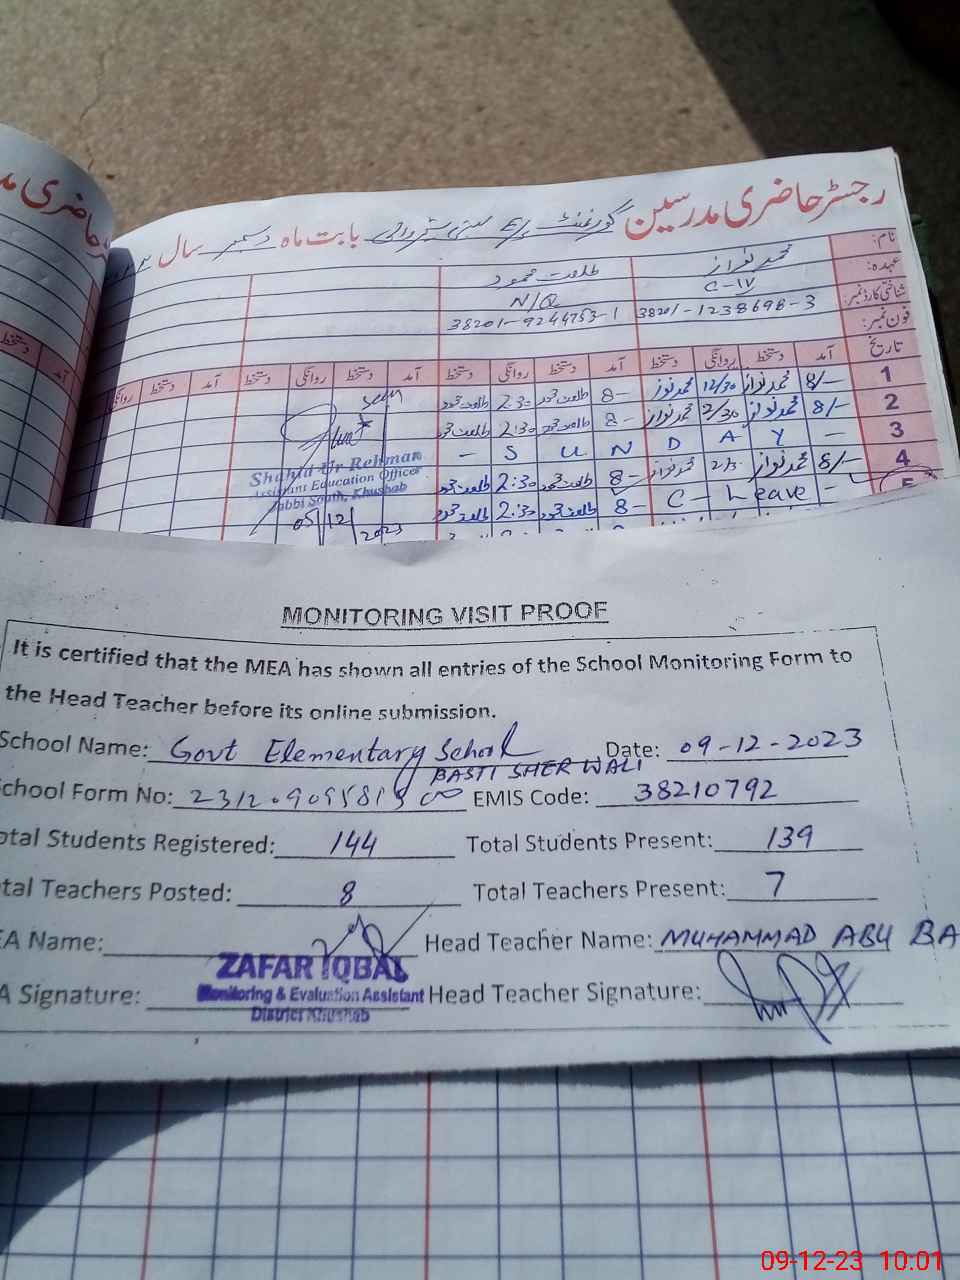 رجسٹر حاضری مدرسین گورنمنٹ بابت ماہ دسمبر سال
نام: محمد نواز طلعت محمود
عہدہ: C-IV N/Q
شناختی کارڈ نمبر: 38201-1238698-3 38201-9244753-1
فون نمبر:
تاریخ آمد دستخط روانگی دستخط آمد دستخط روانگی دستخط آمد دستخط روانگی دستخط آمد دستخط روانگی
1 8/- محمد نواز 12/30 محمد نواز 8- طلعت محمود 2:30 طلعت محمود
2 8/- محمد نواز 2/30 محمد نواز 8- طلعت محمود 2:30 طلعت محمود
3 - S U N D A Y -
4 8/- محمد نواز محمد نواز 8- طلعت محمود 2:30 طلعت محمود
5 C- Leave - 8- طلعت محمود 2:30 طلعت محمود
Seen
Shahid Ur Rehman
Assistant Education Officer
Jabbi South, Khushab
05/12/2023
MONITORING VISIT PROOF
It is certified that the MEA has shown all entries of the School Monitoring Form to
the Head Teacher before its online submission.
School Name: Govt Elementary School Date: 09-12-2023
BASTI SHER WALI
chool Form No: EMIS Code: 38210792
otal Students Registered: 144 Total Students Present: 139
tal Teachers Posted: 8 Total Teachers Present: 7
EA Name: Head Teacher Name: MUHAMMAD ABU BA
ZAFAR IQBAL
A Signature: Monitoring & Evaluation Assistant Head Teacher Signature:
District Khushab
09-12-23 10:01